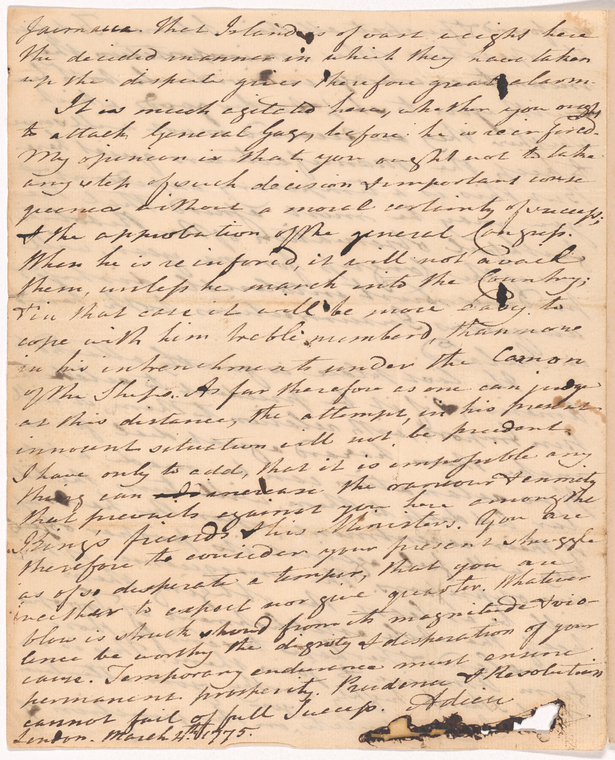 Jamaica. That Island is of vast weight here
the decided manner in which they have taken
up the dispute gives therefore great alarm.
It is much agitated here, whether you ought
to attack General Gage, before he is reinforced.
My opinion is that you ought not to take
any step of such decision & important conse
quence without a moral certainty of success;
& the approbation of the general Congress.
When he is reinforced, it will not avail
them, unless he march into the Country;
& in that case it will be more easy to
cope with him treble numberd, than now
in his intrenchments under the Canon
of the Ships. As far therefore as one can judge
at this distance, the attempt, in his present
innocent situation will not be prudent.
I have only to add, that it is impossible any
thing can increase the rancour & enmity
that prevails against you here among the
King's friends & his Ministers. You are
therefore to consider your present struggle
as of so desperate a temper, that you are
neither to expect nor give quarter. Whatever
blow is struck shoud from its magnitude & vio-
lence be worthy the dignity & desperation of your
cause. Temporary endurance must ensure
permanent prosperity. Prudence & Resolution
cannot fail of full Success. Adieu.
London. March 4th. 1775.